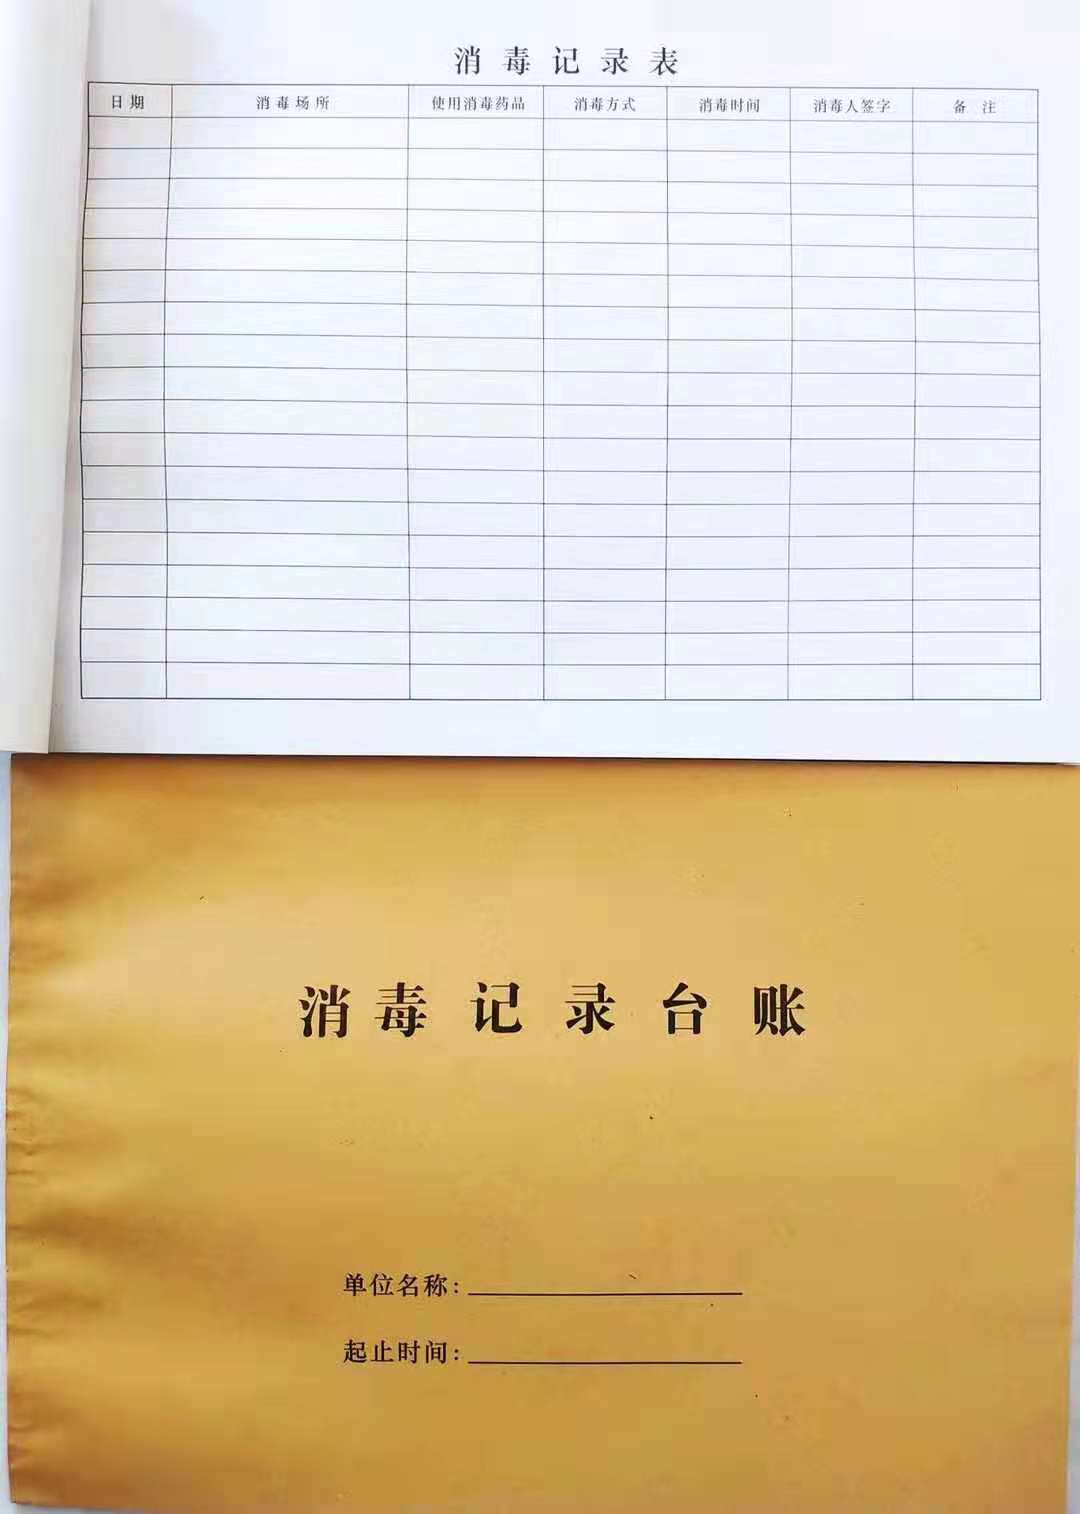 消毒记录表
日期 消毒场所 使用消毒药品 消毒方式 消毒时间 消毒人签字 备注
消毒记录台账
单位名称:
起止时间: